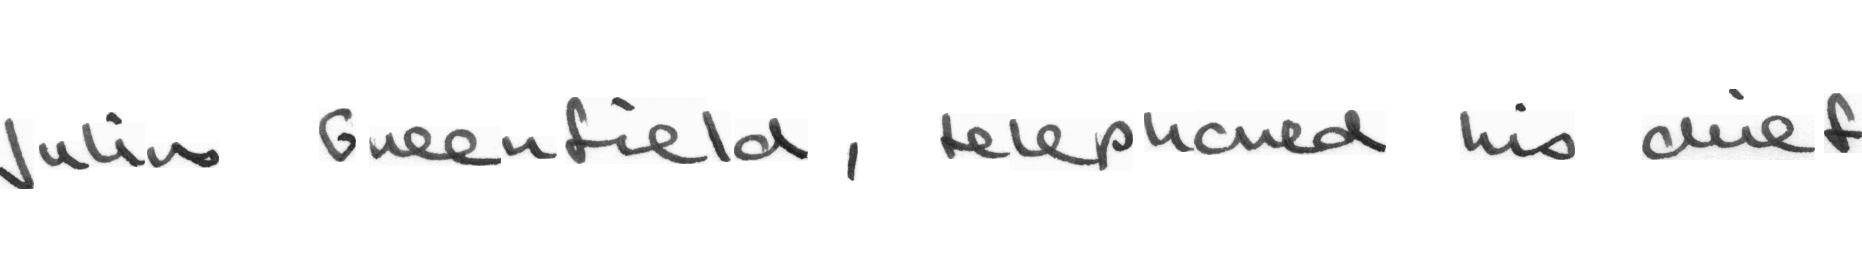 Julius Greenfield, telephoned his chief